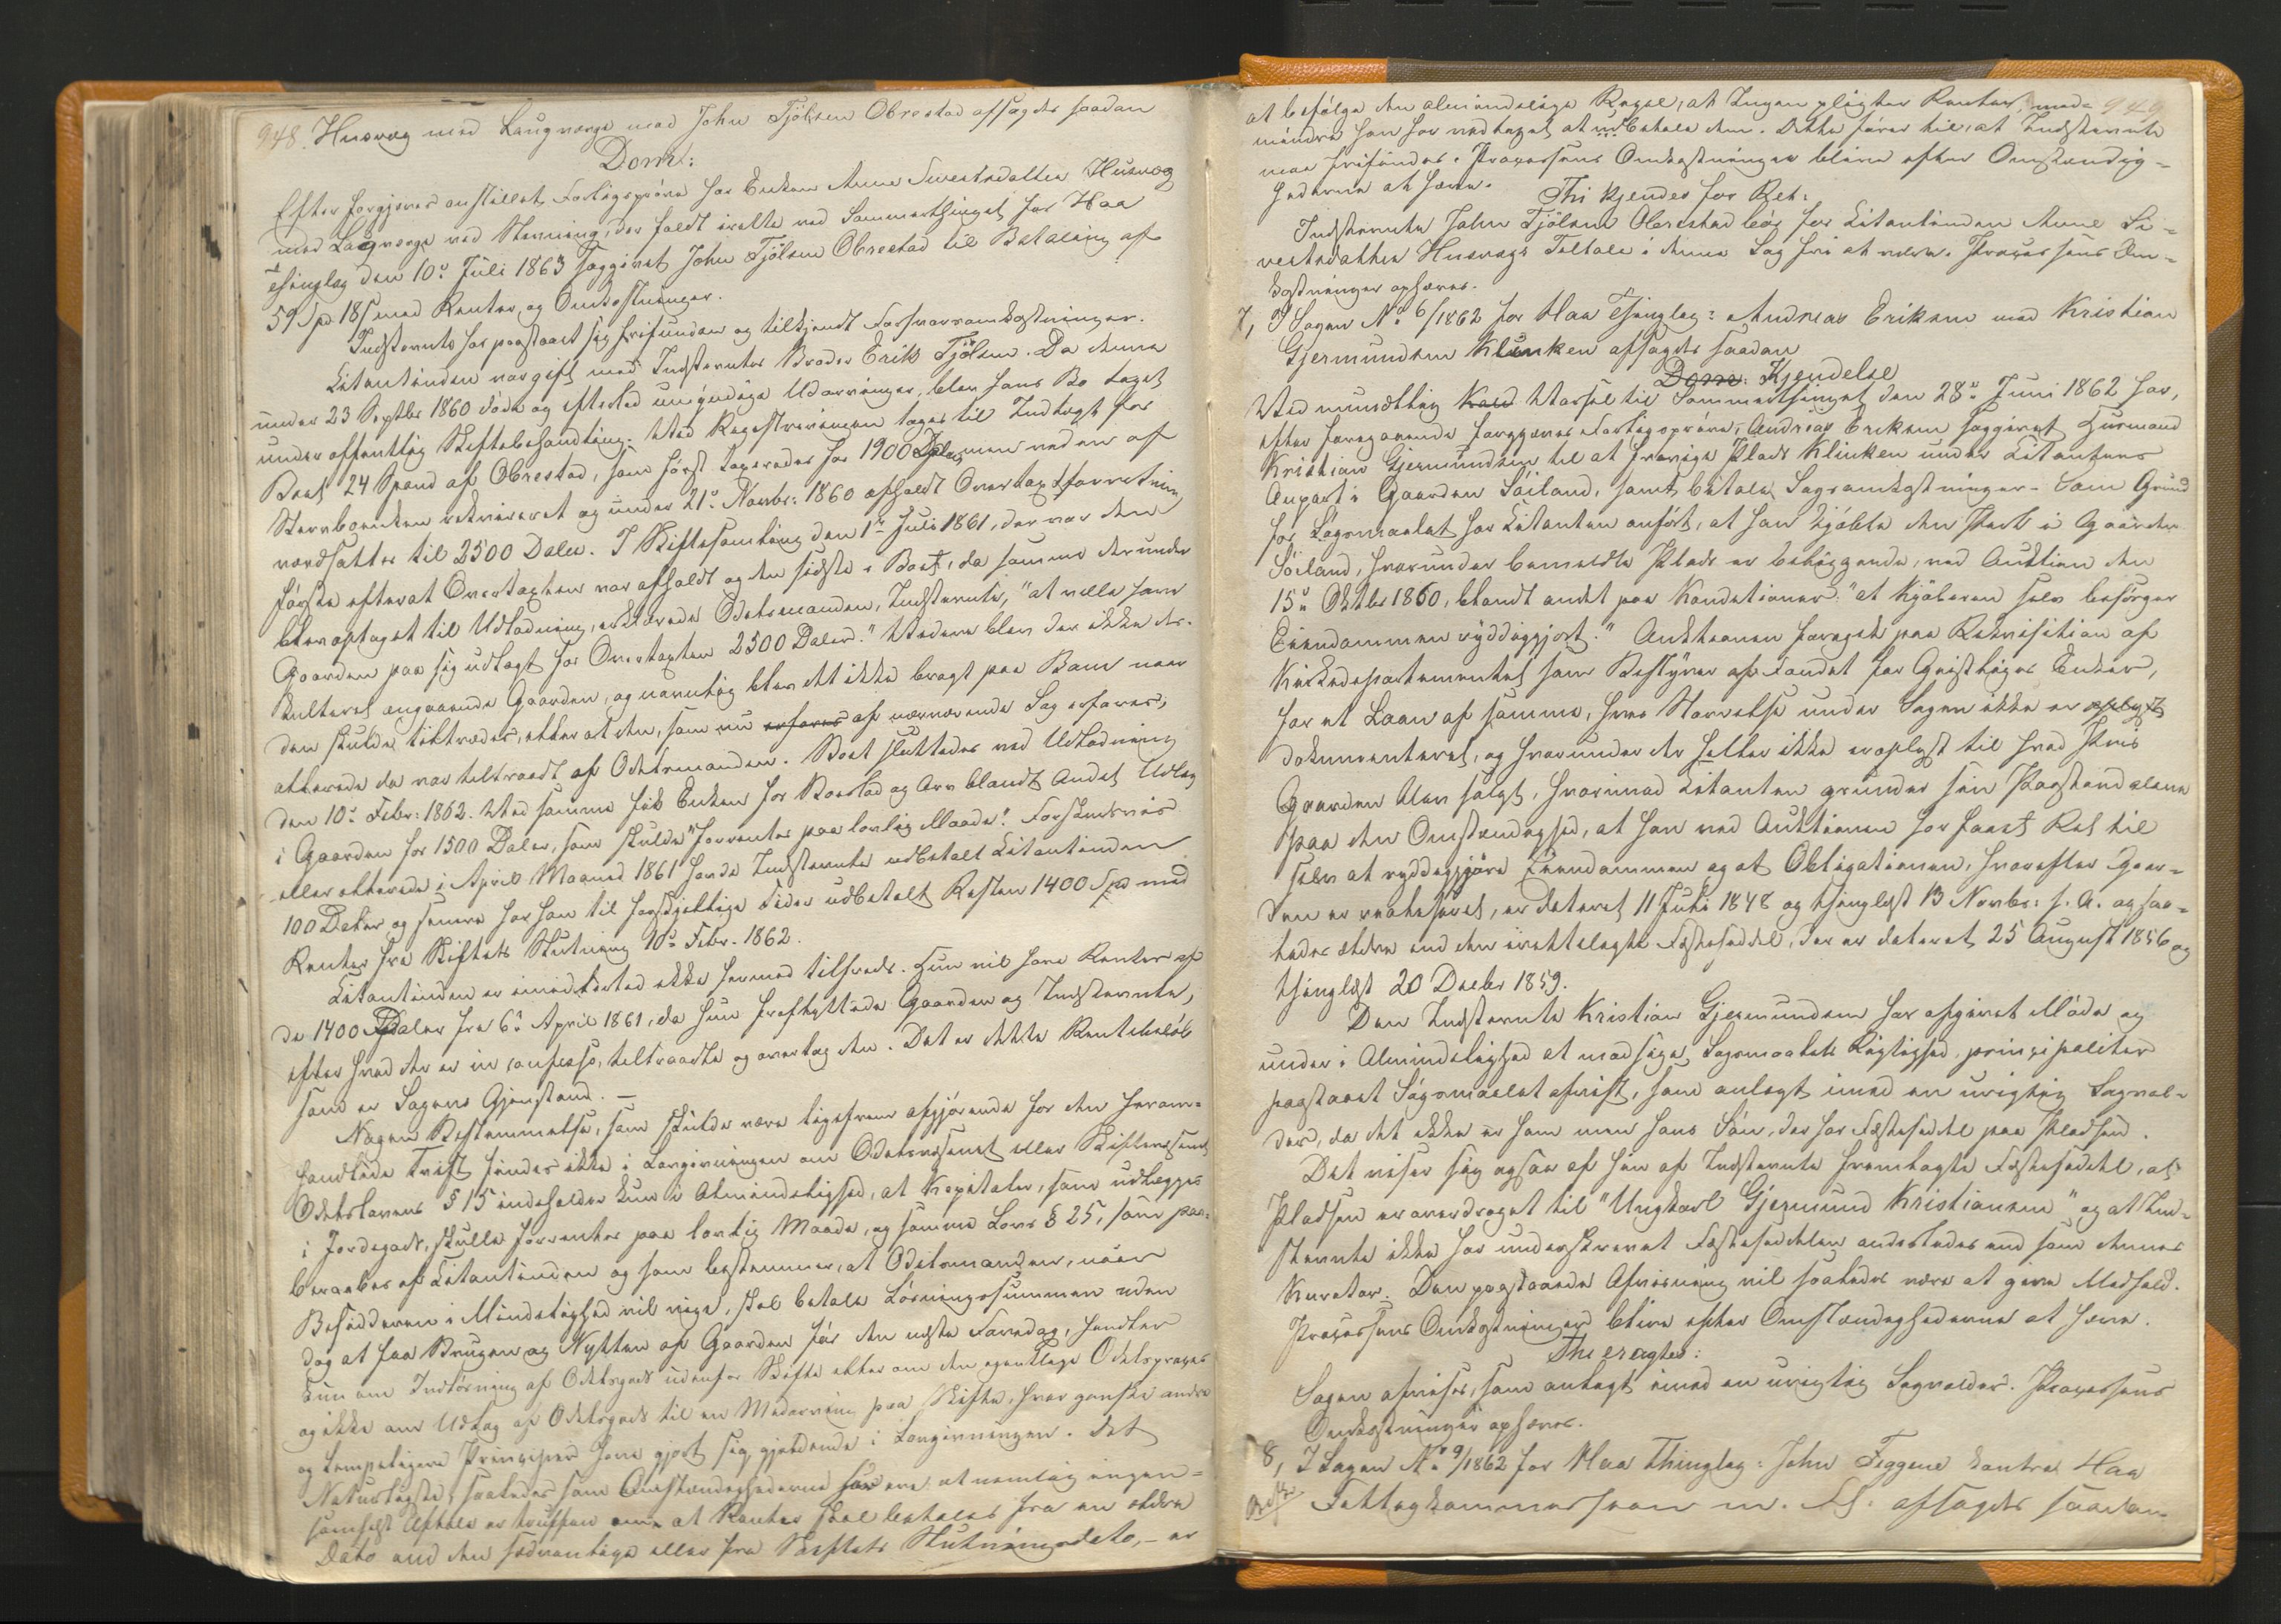 948. Husvæg med Laugværge mod John Tjölsen Obrestad afsagdes saadan
Dom:
Efter forgjæves anstillet Forligspröve har Enken Anne Sivertsdatter Husvæg
med Laugværge ved Stevning, der faldt irette ved Sommerthinget for Haa
Thinglag den 10de Juli 1863 saggivet John Tjölsen Obrestad til Betaling af
59 Spd 18 s med Renter og Omkostninger.
Indstevnte har paastaaet sig frifunden og tilkjendt Forsvarsomkostninger.
Litantinden var gift med Indstevntes Broder Erik Tjölsen. Da denne
under 23 Septbr 1860 döde og efterlod umyndige Udarvinger, blev hans Bo taget
under offentlig Skiftebehandling. Ved Registreringen toges til Indtægt for
Boet 24 Spand af Obrestad, som först taxeredes for 1900 Daler, men ved en af
Stervboenken rekvireret og under 21de Novbr: 1860 afholdt Overtaxtforretning
værdsattes til 2500 Daler. I Skiftesamling den 1ste Juli 1861, der var den
förste efterat Overtaxten var afholdt og den sidste i Boet, da samme derunder
blev optaget til Udlodning, erklærede Odelsmanden, Indstevnte, "at ville have
Gaarden paa sig udlagt for Overtaxten 2500 Daler." Videre blev der ikke de-
culteret angaaende Gaarden, og navnlig blev det ikke bragt paa Bane naar
den skulde tiltrædes, eller at den, som nu erfares af nærværende Sag erfares,
allerede da var tiltraadt af Odelsmanden. Boet sluttedes ved Udlodning
den 10de Febr: 1862. Ved samme fik Enken for Boeslod og Arv blandt Andet Udlæg
i Gaarden for 1500 Daler, som skulde "forrentes paa lovlig Maade". Forskudsvis
eller allerede i April Maaned 1861 havde Indstevnte udbetalt Litantinden
100 Daler og senere har han til forskjellige Tider udbetalt Resten 1400 Spd med
Renter fra Skiftets Slutning 10de Febr. 1862.
Litantinden er imidlertid ikke hermed tilfreds. Hun vil have Renter af
de 1400 Daler fra 6te April 1861, da hun fraflyttede Gaarden og Indstevnte,
efter hvad der er in confesso, tiltraadte og overtog den. Det er dette Rentebelöb
som er Sagens Gjenstand. —
Nogen Bestemmelse, som skulde være ligefrem afgjörende for den herom-
handlede Tvist findes ikke i Lovgivningen om Odelsvæsenet eller Skiftevæsenet
Odelslovens § 15 indeholder kun i Almindelighed, at Kapitaler, som udlægges
i Jordegods, skulle forrentes paa lovlig Maade, og samme Lovs § 25, som paa-
beraabes af Litantinden og som bestemmer, at Odelsmanden, naar
Besidderen i Mindelighed vil vige, skal betale Lösningssummen uden
dog at faa Brugen og Nytten af Gaarden för den næste Faredag, handler
kun om Indlösning af Odelsgods udenfor Skifte eller om den egentlige Odelsproces
og ikke om Udlæg af Odelsgods til en Medarving paa Skifte, hvor ganske andre
og lempeligere Principer have gjort sig gjældende i Lovgivningen. Det
Naturligste, saaledes som Omstændighederne her ere, at nemlig ingen-
somhelst Aftale er truffen om at Renter skal betales fra en ældre
Dato end den sædvanlige eller fra Skiftets Slutningsdato, – er
949
at befölge den almindelige Regel, at Ingen pligter Renter, med-
mindre han har vedtaget at udbetale dem. Dette förer til, at Indstevnte
maa frifindes. Processens Omkostninger blive efter Omstændig-
hederne at hæve.
Thi kjendes for Ret:
Indstevnte John Tjölsen Obrestad bör for Litantinden Anne Si-
vertsdatter Husvægs Tiltale i denne Sag fri at være. Processens Om-
kostninger ophæves.
7, I Sagen No 6/1862 for Haa Thinglag: Andreas Eriksen mod Kristian
Gjermundsen Klinken afsagdes saadan
Dom: Kjendelse
Ved mundtlig Kald Varsel til Sommerthinget den 28de Juni 1862 har,
efter foregaaende forgjæves Forligspröve, Andreas Eriksen saggivet Husmand
Kristian Gjermundsen til at fravige Plads Klinken under Litantens
Anpart i Gaarden Söiland, samt betale Sagsomkostninger. Som Grund
for Sögsmaalet har Litanten anfört, at han kjöbte den Part i Gaarden
Söiland, hvorunder bemeldte Plads er beliggende, ved Auktion den
15de Oktbr 1860, blandt andet paa Konditioner: "at Kjöberen selv besörger
Eiendommen ryddiggjort." Auktionen foregik paa Rekvisition af
Kirkedepartementet som Bestyrer af Fondet for Geistliges Enker,
for et Laan af samme, hvis Störrelse under Sagen ikke er oplyst
dokumenteret, og hvorunder der heller ikke er oplyst til hvad Pris
Gaarden blev solgt, hvorimod Litanten grunder sin Paastand alene
paa den Omstændighed, at han ved Auktionen har faaet Ret til
selv at ryddiggjöre Eiendommen og at Obligationen, hvorefter Gaar-
den er realiseret, er dateret 11 Juli 1848 og thinglæst 13 Novbr: s. A. og saa-
ledes ældre end den irettelagte Fæsteseddel, der er dateret 25 August 1856 og
thinglæst 20 Decbr 1859.
Den Indstevnte Kristian Gjermundsen har afgivet Möde og
under i Almindelighed at modsige Sögsmaalets Rigtighed, principaliter
paastaaet Sögsmaalet afvist, som anlagt imod en urigtig Sagvol-
der, da det ikke er ham men hans Sön, der har Fæsteseddel paa Pladsen.
Det viser sig ogsaa af hin af Indstevnte fremlagte Fæsteseddel, at
Pladsen er overdraget til "Ungkarl Gjermund Kristiansen" og at Ind-
stevnte ikke har underskrevet Fæstesedlen anderledes end som dennes
Kurator. Den paastaaede Afvisning vil saaledes være at give Medhold.
Processens Omkostninger blive efter Omstændighederne at hæve.
Thi eragtes:
Sagen afvises, som anlagt imod en urigtig Sagvolder. Processens
Omkostninger ophæves.
8, I Sagen No 9/1862 for Haa Thinglag: John Figgene contra Haa
Fattigkommission m. Fl. afsagdes saadan